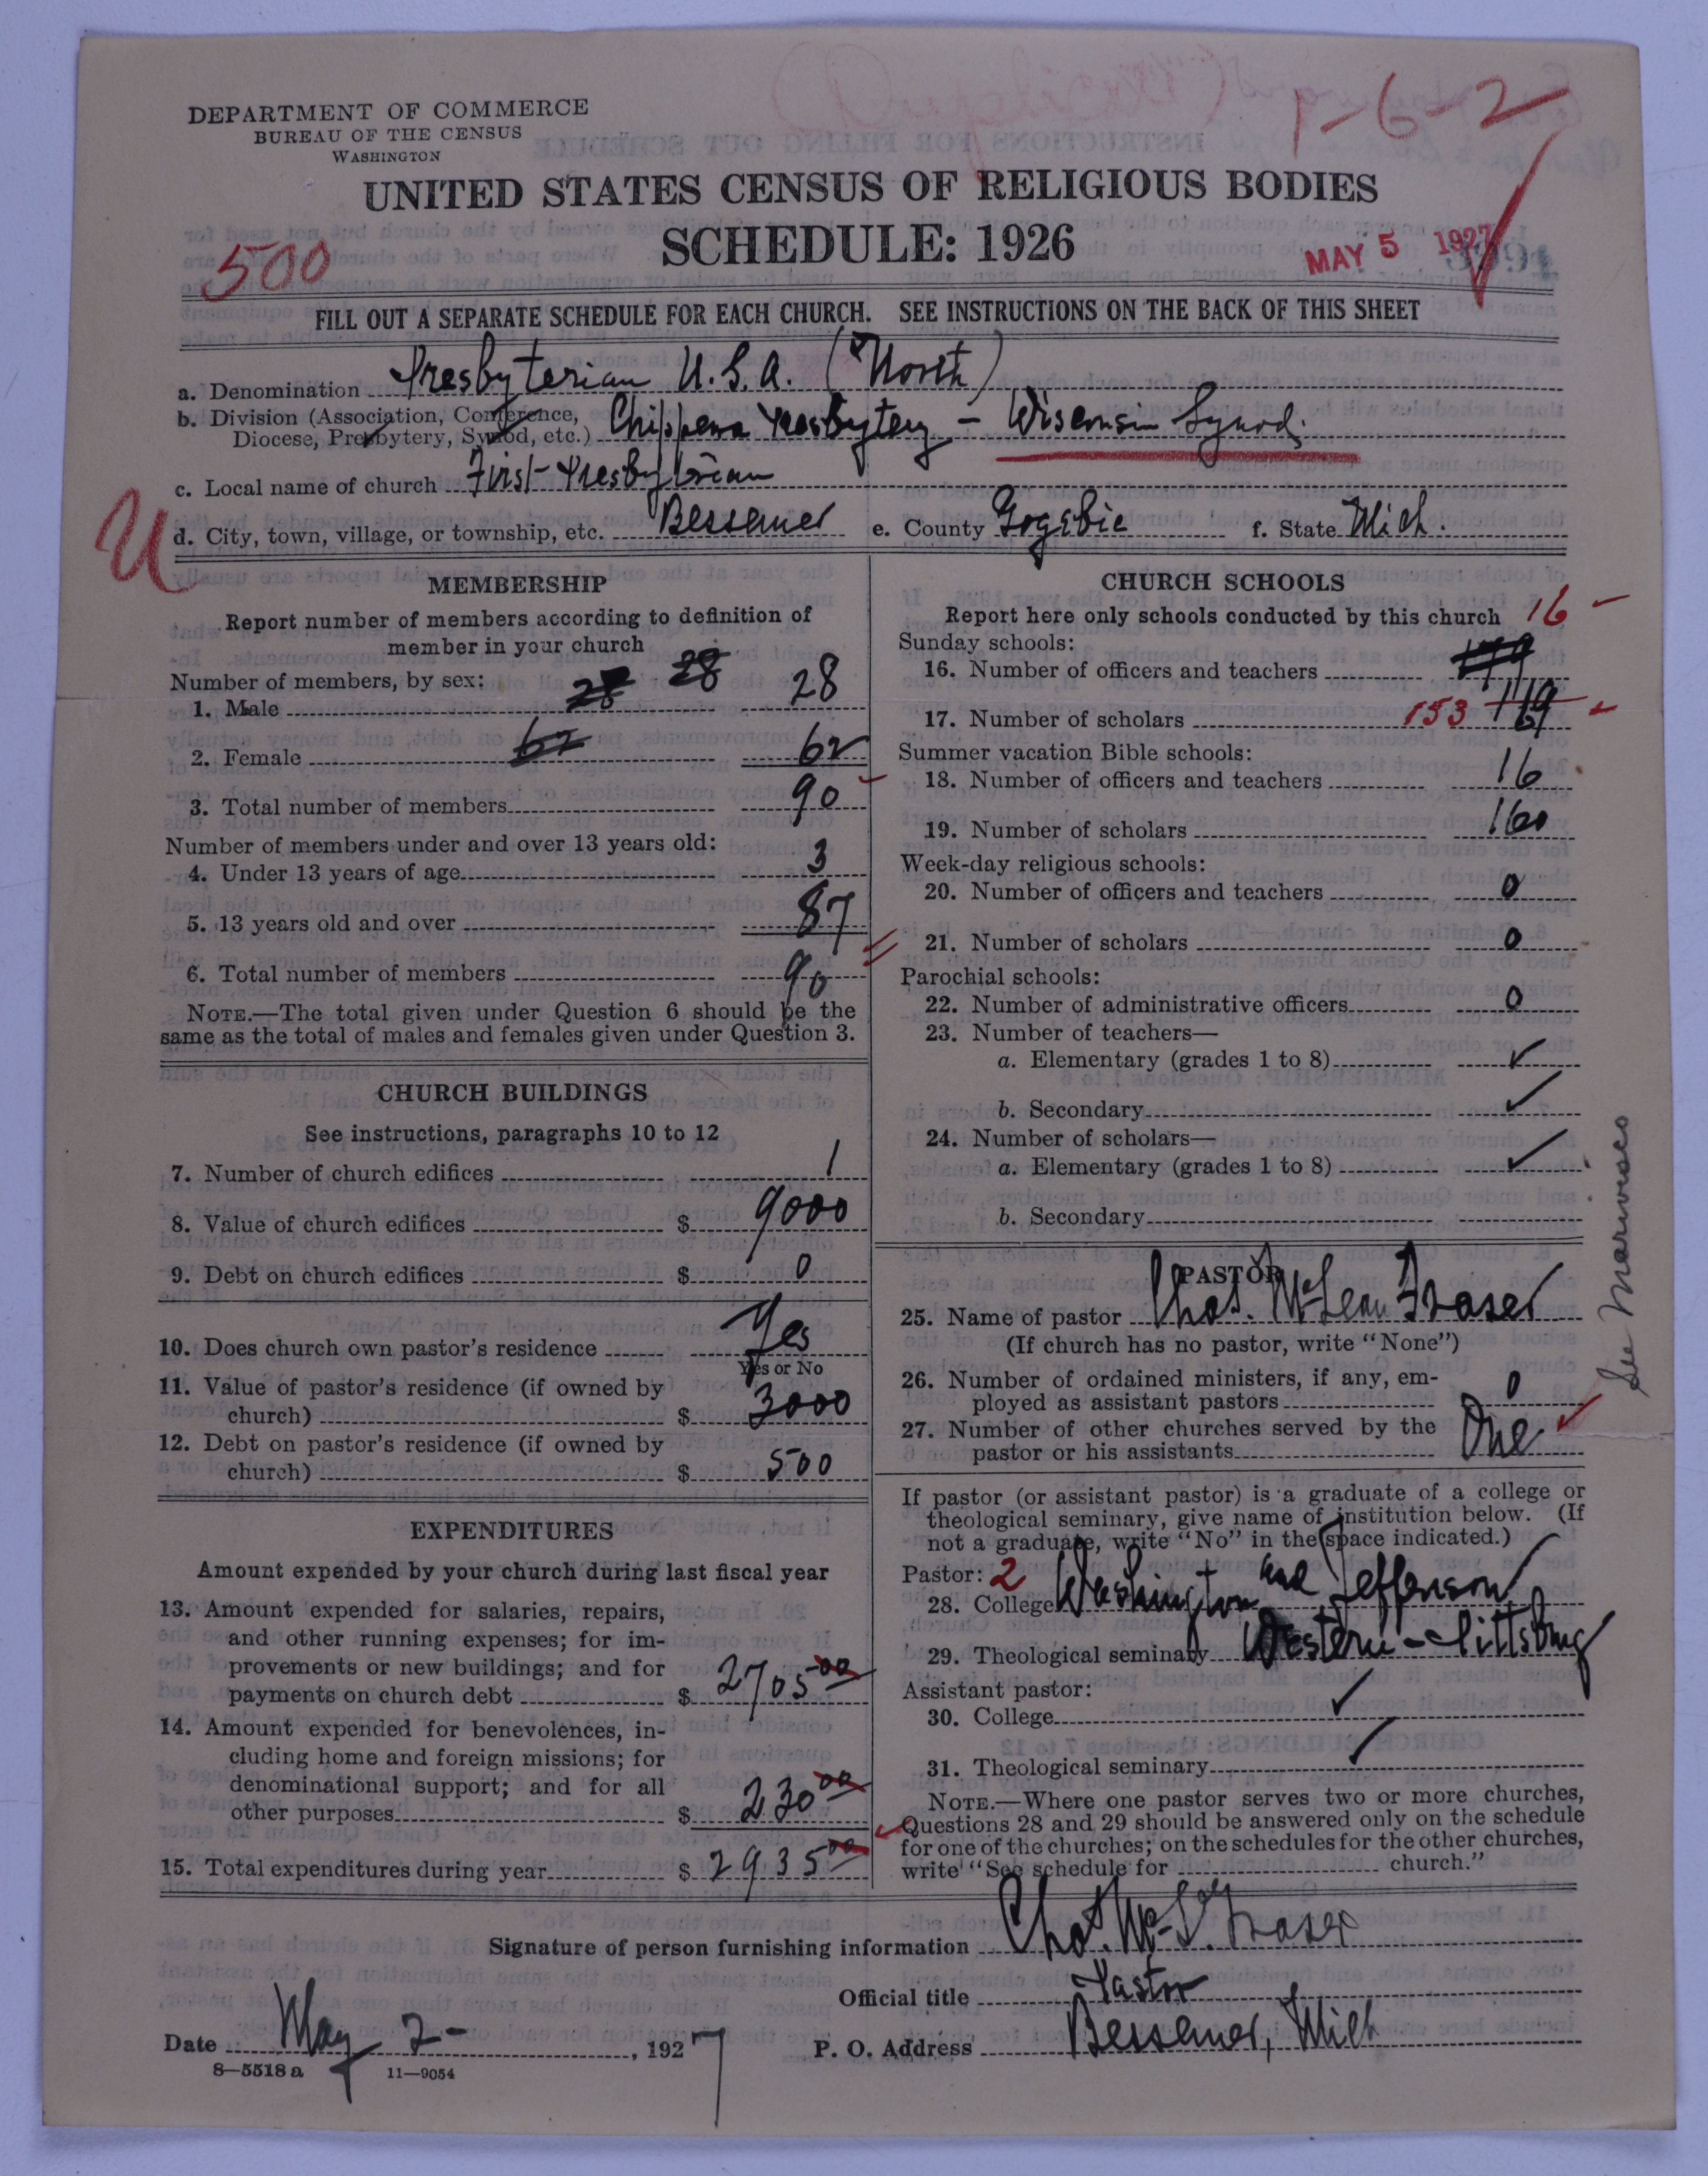 1-6-2
DEPARTMENT OF COMMERCE
BUREAU OF THE CENSUS
WASHINGTON
UNITED STATES CENSUS OF RELIGIOUS BODIES
SCHEDULE: 1926
500
MAY 5 1927
FILL OUT A SEPARATE SCHEDULE FOR EACH CHURCH. SEE INSTRUCTIONS ON THE BACK OF THIS SHEET
a. Denomination Presbyterian U.S.A. (North)
b. Division (Association, Conference, Diocese, Presbytery, Synod, etc.) Chippewa Presbytery - Wisconsin Synod.
c. Local name of church First Presbyterian
U
d. City, town, village, or township, etc. Bessemer e. County Gogebic f. State Mich.
MEMBERSHIP
Report number of members according to definition of
member in your church
Number of members, by sex:
1. Male 28 28 28
2. Female 62 62
3. Total number of members 90
Number of members under and over 13 years old:
4. Under 13 years of age 3
5. 13 years old and over 87
6. Total number of members 90
NOTE.—The total given under Question 6 should be the
same as the total of males and females given under Question 3.
CHURCH BUILDINGS
See instructions, paragraphs 10 to 12
7. Number of church edifices 1
8. Value of church edifices $ 9000
9. Debt on church edifices $ 0
10. Does church own pastor's residence Yes
Yes or No
11. Value of pastor's residence (if owned by
church) $ 3000
12. Debt on pastor's residence (if owned by
church) $ 500
EXPENDITURES
Amount expended by your church during last fiscal year
13. Amount expended for salaries, repairs,
and other running expenses; for im-
provements or new buildings; and for
payments on church debt $ 2705 00
14. Amount expended for benevolences, in-
cluding home and foreign missions; for
denominational support; and for all
other purposes $ 230 00
15. Total expenditures during year $ 2935 00
CHURCH SCHOOLS
Report here only schools conducted by this church 16
Sunday schools:
16. Number of officers and teachers
17. Number of scholars 153
Summer vacation Bible schools:
18. Number of officers and teachers 16
19. Number of scholars 160
Week-day religious schools:
20. Number of officers and teachers 0
21. Number of scholars 0
Parochial schools:
22. Number of administrative officers 0
23. Number of teachers—
a. Elementary (grades 1 to 8) ✓
b. Secondary ✓
24. Number of scholars—
a. Elementary (grades 1 to 8) ✓
b. Secondary
PASTOR
25. Name of pastor Chas. McLean Fraser
(If church has no pastor, write "None")
26. Number of ordained ministers, if any, em-
ployed as assistant pastors 0
27. Number of other churches served by the
pastor or his assistants One
See Marenisco
If pastor (or assistant pastor) is a graduate of a college or
theological seminary, give name of institution below. (If
not a graduate, write "No" in the space indicated.)
Pastor: 2
28. College Washington and Jefferson
29. Theological seminary Western - Pittsburg
Assistant pastor:
30. College ✓
31. Theological seminary ✓
NOTE.—Where one pastor serves two or more churches,
Questions 28 and 29 should be answered only on the schedule
for one of the churches; on the schedules for the other churches,
write "See schedule for church."
Signature of person furnishing information Chas. McL. Fraser
Official title Pastor
Date May 2 - , 1927 P. O. Address Bessemer, Mich
8—5518 a 11—9054